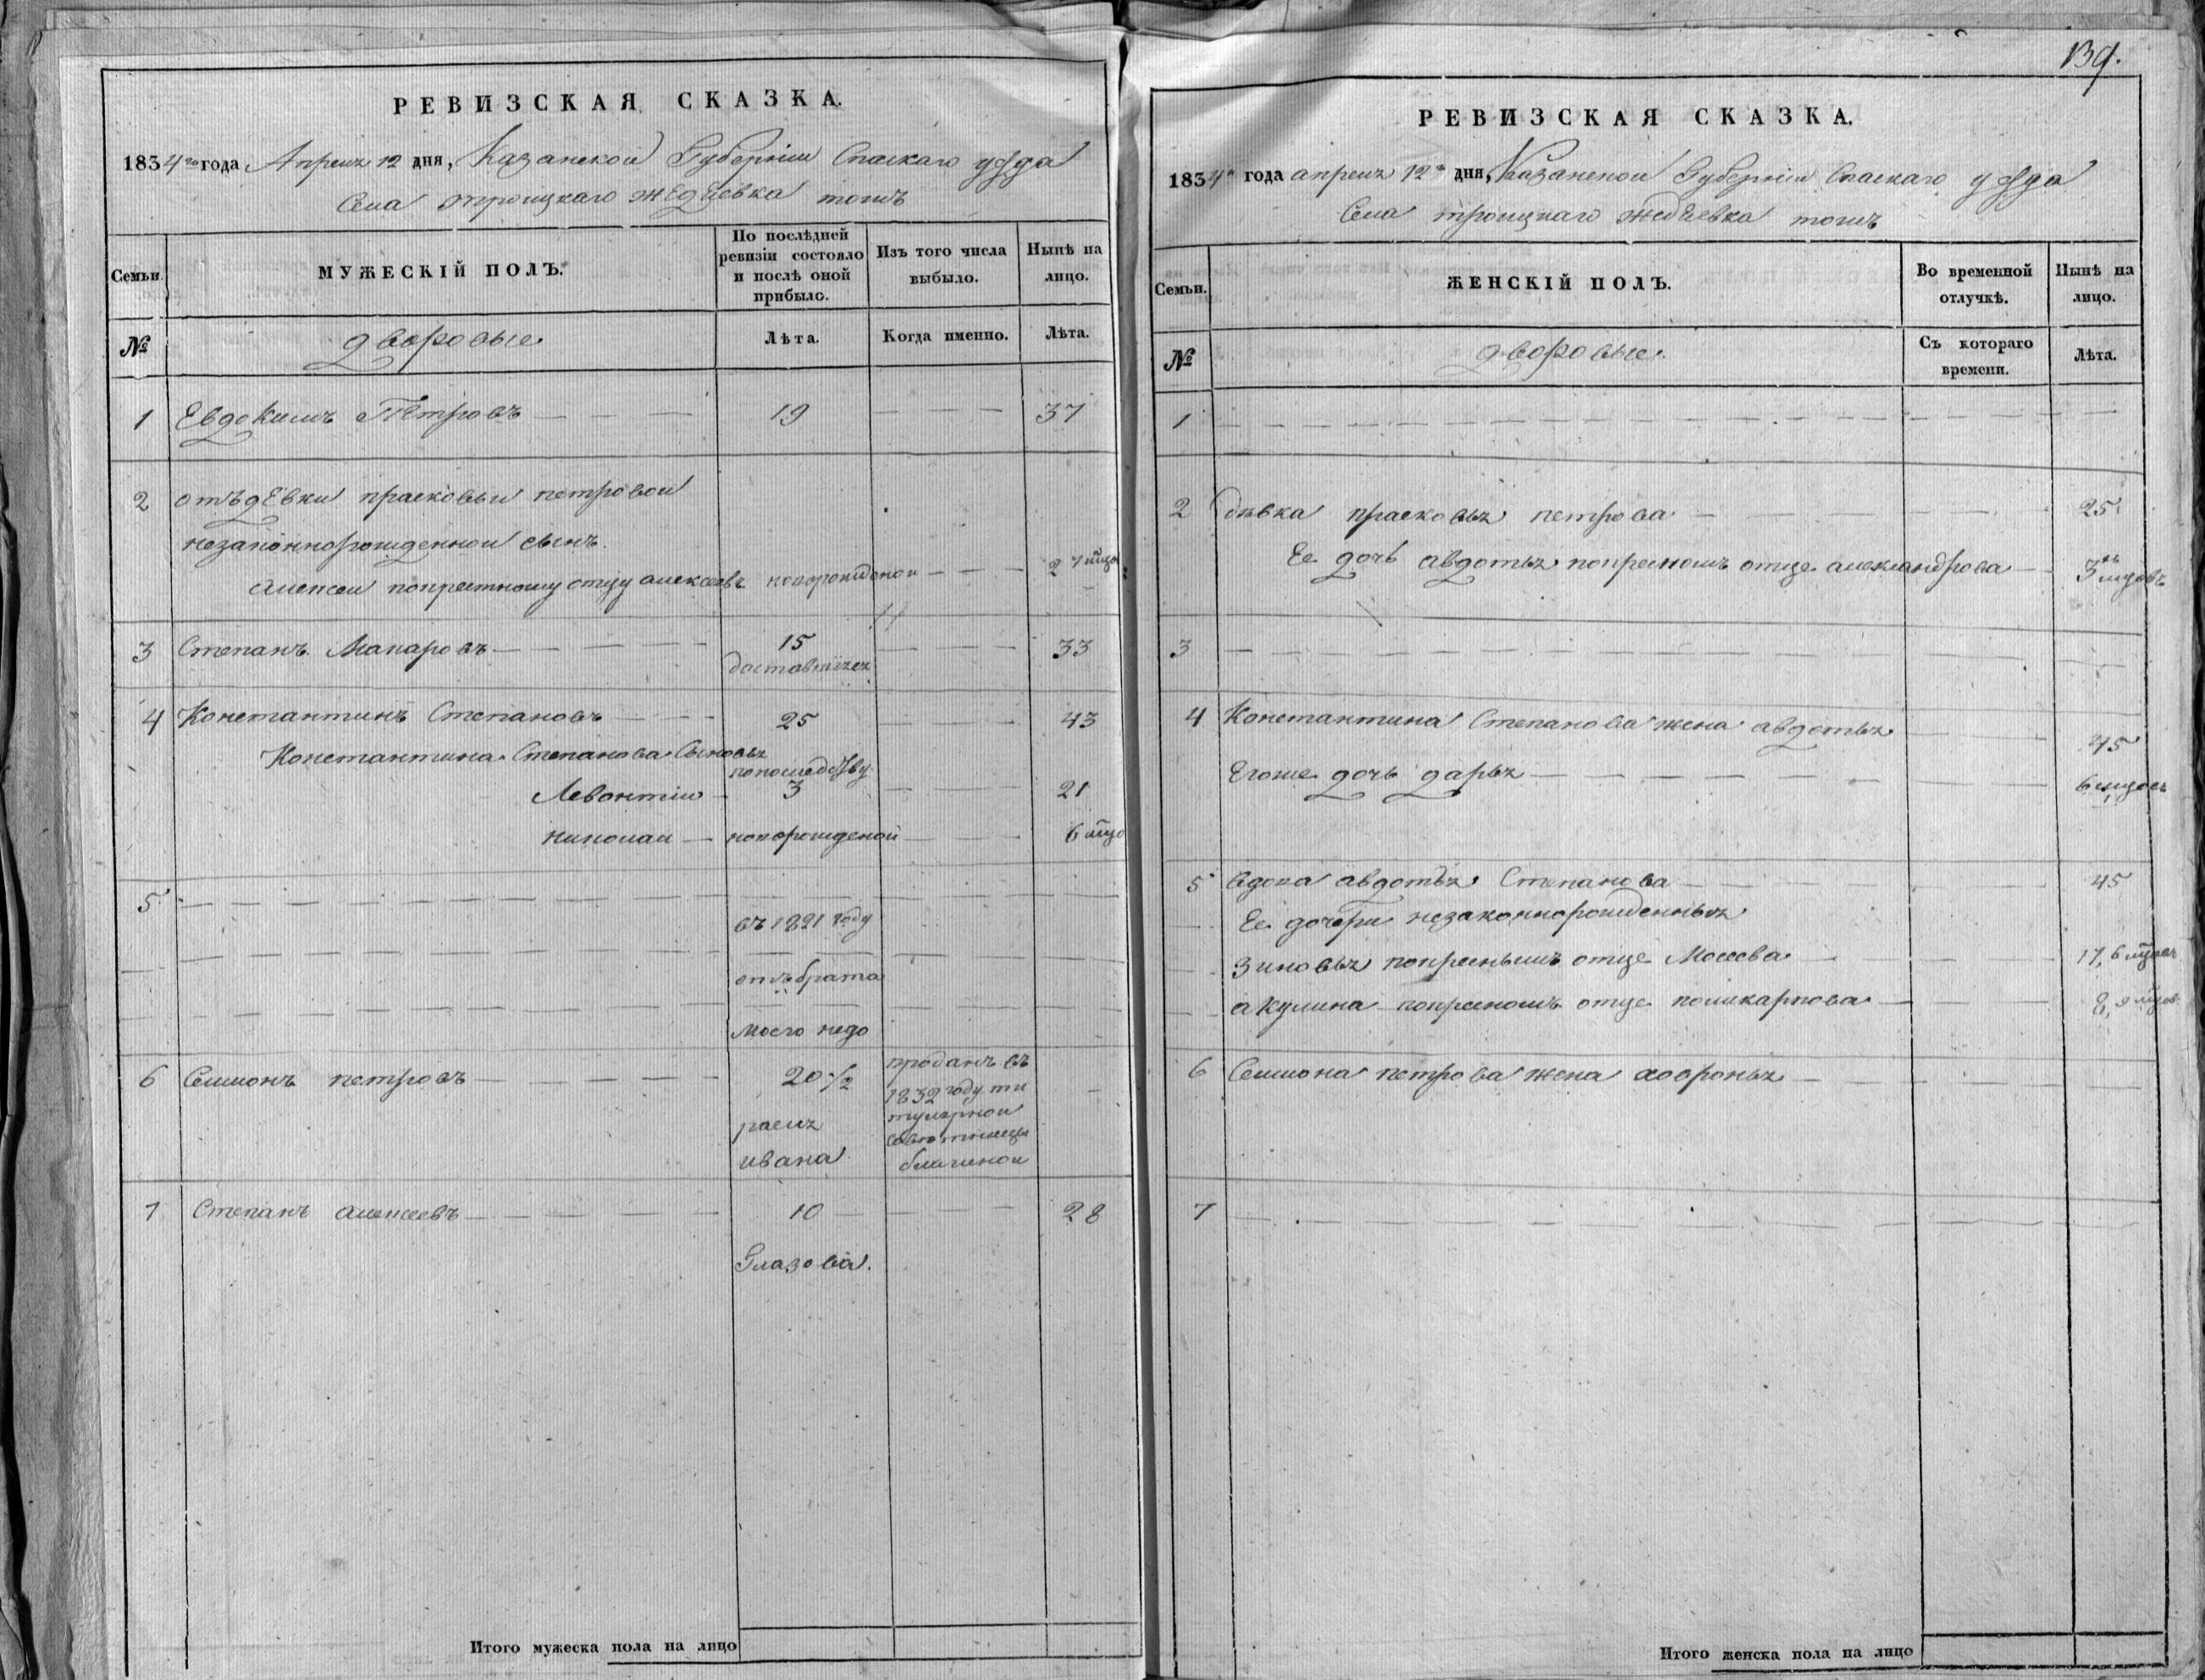 РЕВИЗСКАЯ СКАЗКА.
1834го года Апреля 12 дня, Казанской Губернии Спаскаго уѣзда
Села троицкаго жедѣевка тошъ
Семьи.
МУЖЕСКІЙ ПОЛЪ.
По послѣдней ревизіи состояло и послѣ оной прибыло.
Изъ того числа выбыло.
Нынѣ на лицо.
№
дворовые
Лѣта.
Когда именно.
Лѣта.
1 Евдокимъ Петровъ 19 37
2 отъ дѣвки прасковьи петровой
незаконнорожденной сынъ
алексей покрестному отцу алексеевъ новорожденой 2 7 мцо
3 Степанъ Макаровъ 15 33
доставшіяся
4 Константинъ Степановъ 25 43
Константина Степанова Сыновья
понаследству
Левонтіи 3 21
николаи новорожденой 6 мцо
5
въ 1821 году
отъ брата
моего недо
6 Семионъ петровъ 20 1/2 проданъ въ
1832 году ти
расля тулярной
советницы
ивана
7 Степанъ алексеевъ 10 28
Глазова.
Итого мужеска пола на лицо
139.
РЕВИЗСКАЯ СКАЗКА.
1834го года апреля 12го дня, Казанской Губерніи Спаскаго уѣзда
Села троицкаго жедѣевка тошъ
Семьи.
ЖЕНСКІЙ ПОЛЪ.
Во временной отлучкѣ.
Нынѣ на лицо.
№
дворовые.
Съ котораго времени.
Лѣта.
1
2 дѣвка прасковья петрова 25
Ее дочь авдотья покресномъ отце александрова 3 мцовъ
3
4 Константина Степанова жена авдотья 45
Егоже дочь дарья 6 мцовъ
5 вдова авдотья Степанова 45
Ее дочери незаконнорожденныя
Зиновья покресныимъ отце Мосеева 17, 6 мцовъ
акулина покресномъ отце поликарпова 8, 9 мцов
6 Семиона петрова жена
7
Итого женска пола на лицо